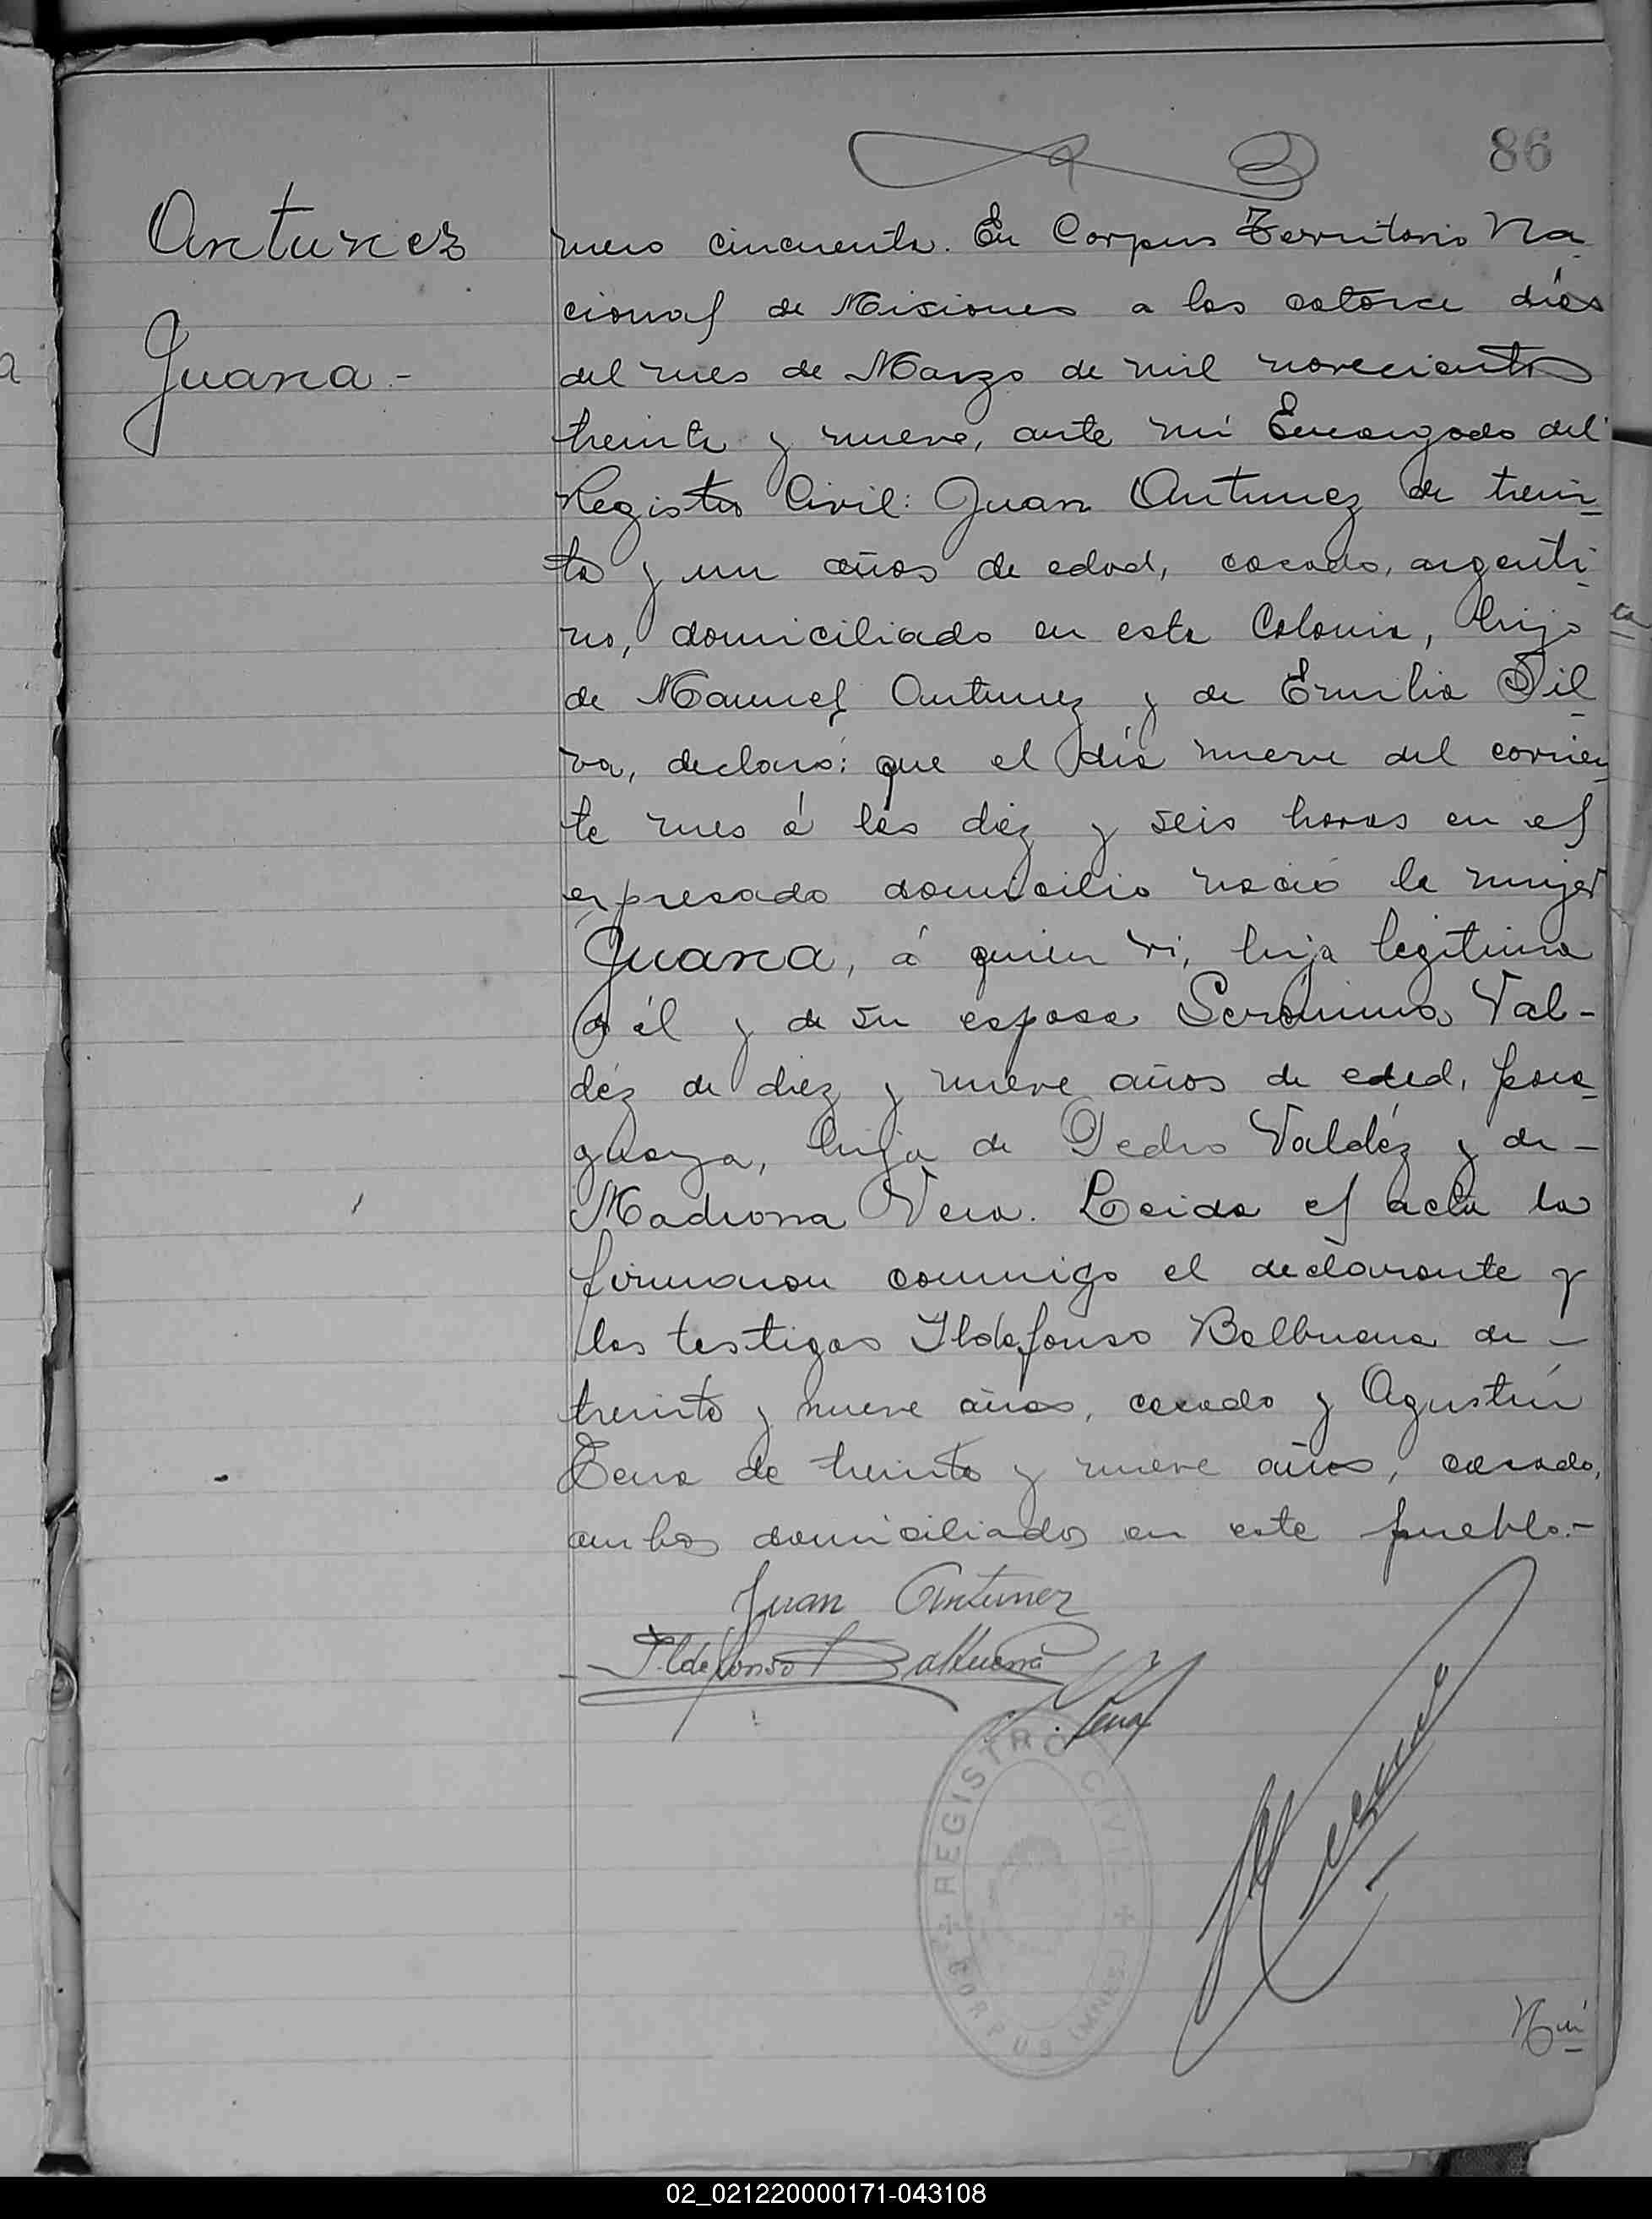 86
Antunez
Juana.-
mero cincuenta. En Corpus Territorio Na
cional de Misiones a los catorce días
del mes de Marzo de mil novecientos
treinta y nueve, ante mi Encargado del
Registro Civil: Juan Antunez de trein
ta y un años de edad, casado, argenti
no, domiciliado en esta Colonia, hijo
de Manuel Antunez y de Emilia Sil
va, declaró: que el día nueve del corrien
te mes á las diéz y seis horas en el
expresado domicilio nació la mujer
Juana, á quien vi, hija legitima
de él y de su esposa Gerónima Val-
déz de diez y nueve años de edad, para
guaya, hija de Pedro Valdéz y de -
Madrona Vera. Leida el acta la
firmaron conmigo el declarante y
los testigos Ildefonso Balbuena de -
treinta y nueve años, casado y Agustín
Tena de treinta y nueve años, casado,
ambos domiciliados en este pueblo.-
Juan Antunez
Ildefonso Balbuena
Tena
REGISTRO CIVIL
CORPUS (MNES.)
Nú
02_021220000171-043108